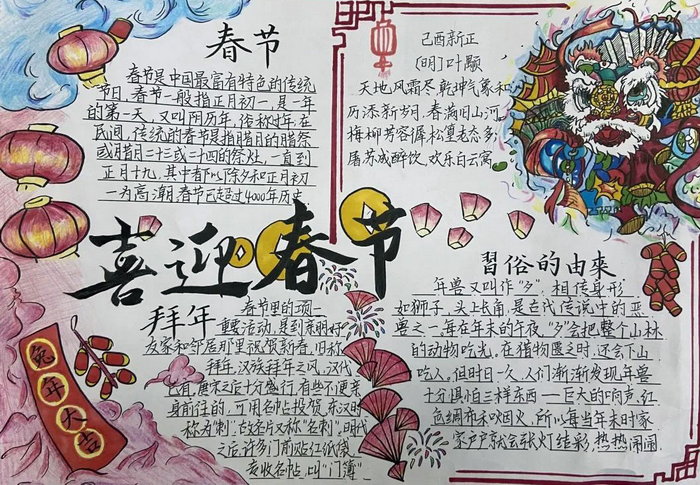 春节
春节是中国最富有特色的传统
节日,春节一般指正月初一,是一年
的第一天,又叫阴历年,俗称过年,在
民间,传统的春节是指腊月的腊祭
或腊月二十三或二十四的祭灶,一直到
正月十九,其中以除夕和正月初
一为高潮,春节已超过4000年历史
己酉新正
(明)叶颙
天地风霜尽,乾坤气象和
历添新岁月,春满旧山河
梅柳芳容徲,松篁老态多,
屠苏成醉饮,欢乐白云窝
喜迎春节
拜年
春节里的一项
重要活动,是到亲朋好
友家和邻居那里祝贺新春,旧称
拜年,汉族拜年之风,汉代
已有,唐宋之后十分盛行,有些不便亲
身前往的,可用名帖投贺,东汉时
称为"刺",故名片又称"名刺",明代
之后,许多门前贴红纸袋,
收名帖,叫"门簿"
習俗的由来
年兽又叫作"夕",相传身形
如狮子,头上长角,是古代传说中的恶
兽之一,每在年末的午夜,"夕"会把整个山林
的动物吃光,在猎物匮乏时,还会下山
吃人,但时日一久,人们渐渐发现年兽
十分惧怕三样东西——巨大的响声,红
色绸布和炊火,所以每当年末时家
家户户就会张灯结彩,热热闹闹
兔年大吉